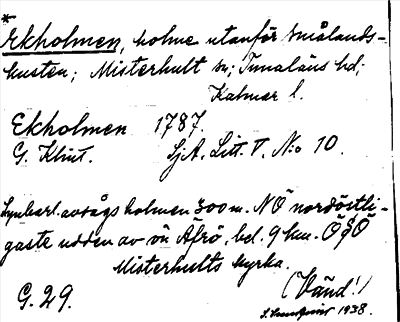 *
Ekholmen, holme utanför Smålands-
kusten; Misterhult sn; Tunaläns hd;
Kalmar l.
Ekholmen 1787.
G. Klint. SjA. Litt. V. N:o 10.
Synbarl. avsågs holmen 300 m. NÖ nordöstli-
gaste udden av ön Äfrö, bel. 9 km. ÖgÖ
Misterhults kyrka.
(Vänd!)
G. 29. 1938.